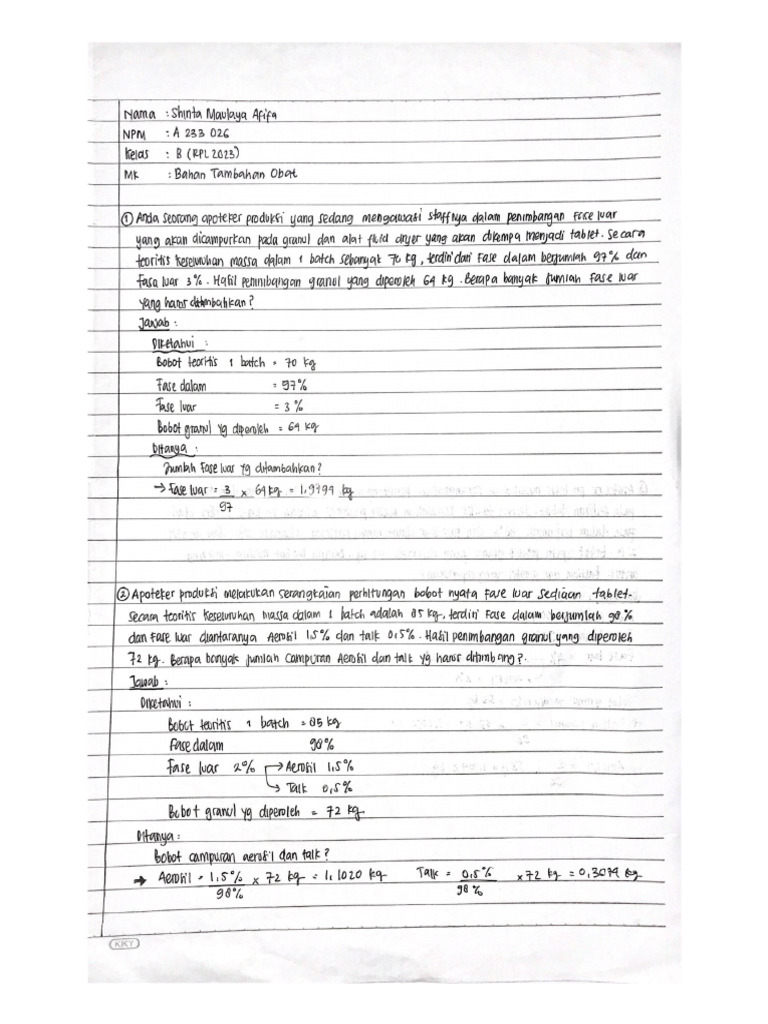 Nama : Shinta Maulaya Afifa
NPM : A 233 026
Kelas : B (RPL 2023)
MK : Bahan Tambahan Obat
① Anda seorang apoteker produksi yang sedang mengawasi staffnya dalam penimbangan fase luar
yang akan dicampurkan pada granul dan alat fluid dryer yang akan dikempa menjadi tablet. Secara
teoritis keseluruhan massa dalam 1 batch sebanyak 70 kg, terdiri dari Fase dalam berjumlah 97% dan
Fasa luar 3%. Hasil penimbangan granul yang diperoleh 64 kg. Berapa banyak jumlah Fase luar
yang harus ditambahkan?
Jawab :
Diketahui :
Bobot teoritis 1 batch = 70 kg
Fase dalam = 97%
Fase luar = 3%
Bobot granul yg diperoleh = 64 kg
Ditanya :
Jumlah Fase luar yg ditambahkan?
→ Fase luar = 3/97 × 64 kg = 1,9794 kg
② Apoteker produksi melakukan serangkaian perhitungan bobot nyata Fase luar sediaan tablet.
Secara teoritis keseluruhan massa dalam 1 batch adalah 85 kg, terdiri Fase dalam berjumlah 98%
dan Fase luar diantaranya Aerosil 1,5% dan talk 0,5%. Hasil penimbangan granul yang diperoleh
72 kg. Berapa banyak jumlah Campuran Aerosil dan talk yg harus ditimbang?.
Jawab :
Diketahui :
Bobot teoritis 1 batch = 85 kg
Fase dalam 98%
Fase luar 2% → Aerosil 1,5%
→ Talk 0,5%
Bobot granul yg diperoleh = 72 kg
Ditanya :
Bobot campuran aerosil dan talk?
→ Aerosil = 1,5%/98% × 72 kg = 1,1020 kg Talk = 0,5%/98% × 72 kg = 0,3074 kg
KKY